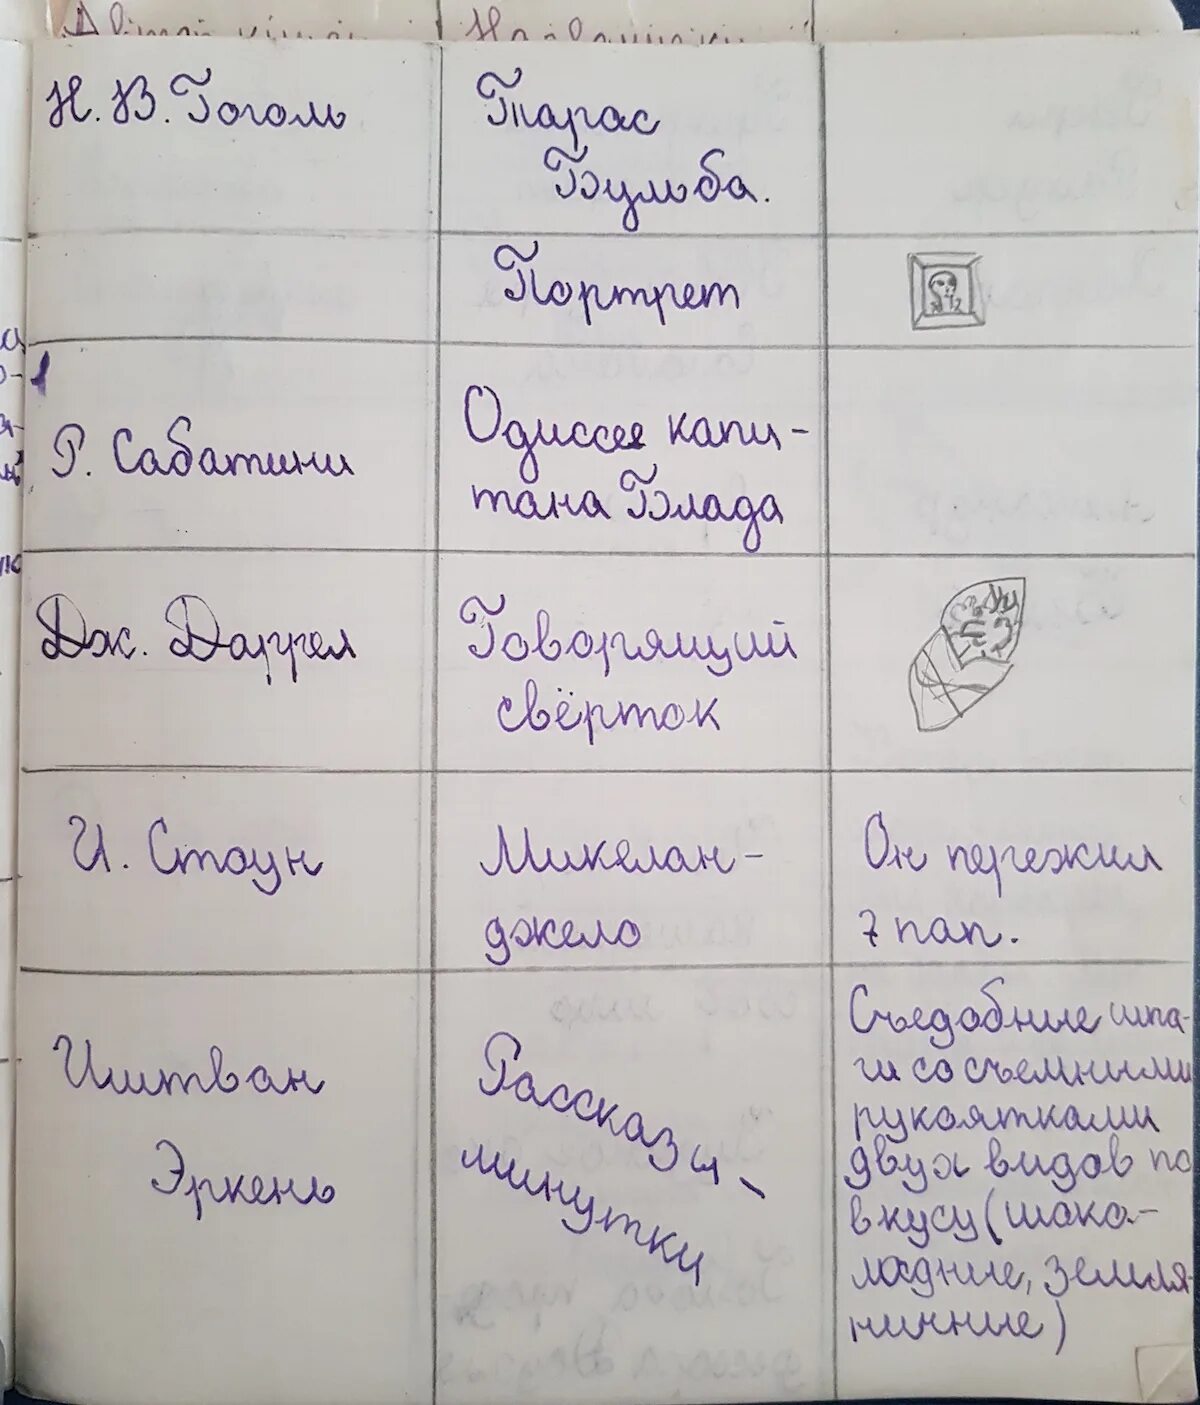 Н. В. Гоголь
Тарас
Бульба.
Портрет
Р. Сабатини
Одиссея капи-
тана Блада
Дж. Даррел
Говорящий
свёрток
И. Стоун
Микелан-
джело
Он пережил
7 пап.
Иштван
Эркень
Рассказы-
минутки
Съедобные шпа-
ги со съемными
рукоятками
двух видов по
вкусу (шоко-
ладные, земля-
ничные)